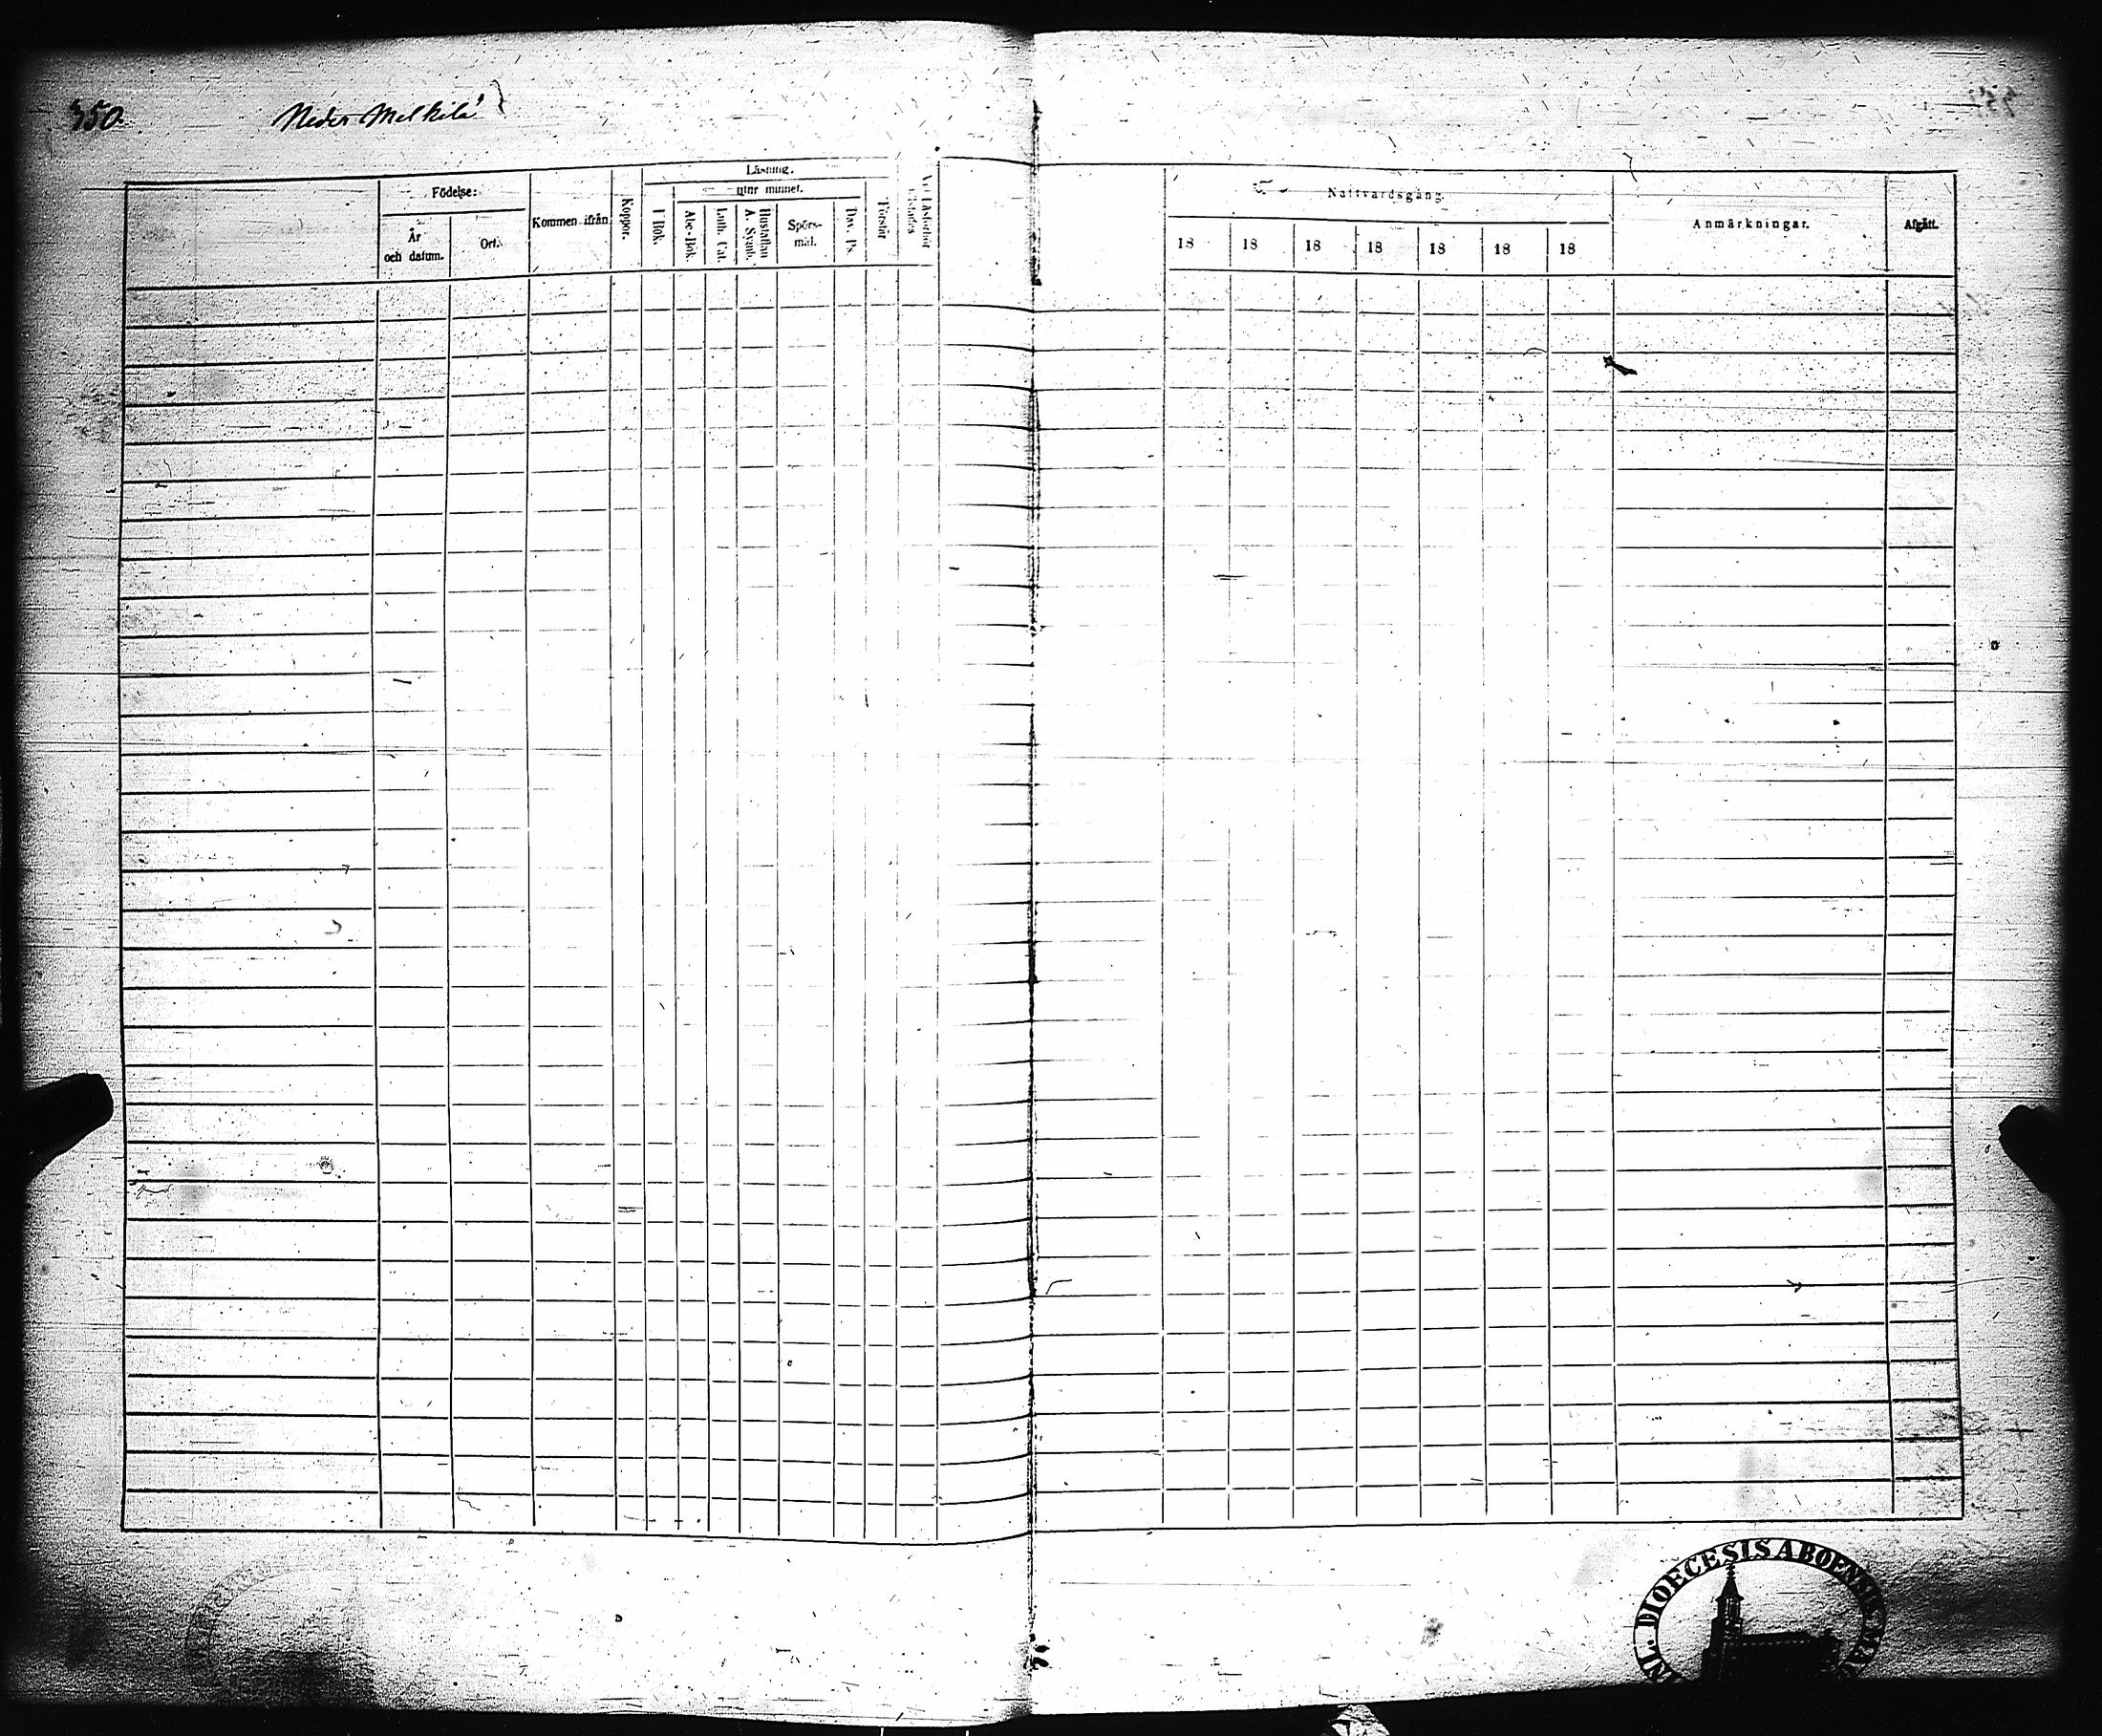 350.
Neder Melkilä
Födelse:
År och datum.
Ort.
Kommen ifrån
Koppor.
Läsning.
I Bok.
utur minnet.
Abc-Bok.
Luth. Cat.
Hustaflan A. Symb.
Spörs-mål.
Dav. Ps.
Förstår
Nattvardsgång.
18 18 18 18 18 18 18
Anmärkningar.
Afgått.
DIOECESIS ABOENSIS